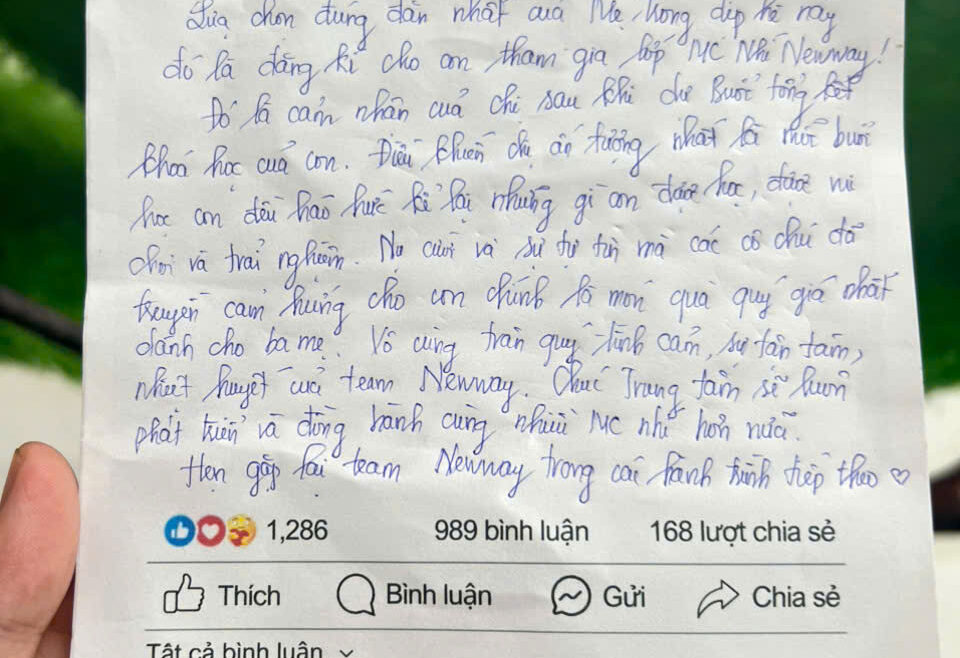 Lựa chọn đúng đắn nhất của Mẹ trong dịp hè này
đó là đăng kí cho con tham gia lớp MC Nhí Newway!
Đó là cảm nhận của chị sau khi dự Buổi tổng kết
khoá học của con. Điều khiến chị ấn tượng nhất là mỗi buổi
học con đều háo hức kể lại những gì con được học, được vui
chơi và trải nghiệm. Nụ cười và sự tự tin mà các cô chú đã
truyền cảm hứng cho con chính là món quà quý giá nhất
dành cho ba mẹ! Vô cùng trân quý tình cảm, sự tận tâm,
nhiệt huyết của team Newway. Chúc Trung tâm sẽ luôn
phát triển và đồng hành cùng nhiều MC nhí hơn nữa.
Hẹn gặp lại team Newway trong các hành trình tiếp theo ♡
1,286 989 bình luận 168 lượt chia sẻ
Thích Bình luận Gửi Chia sẻ
Tất cả bình luận